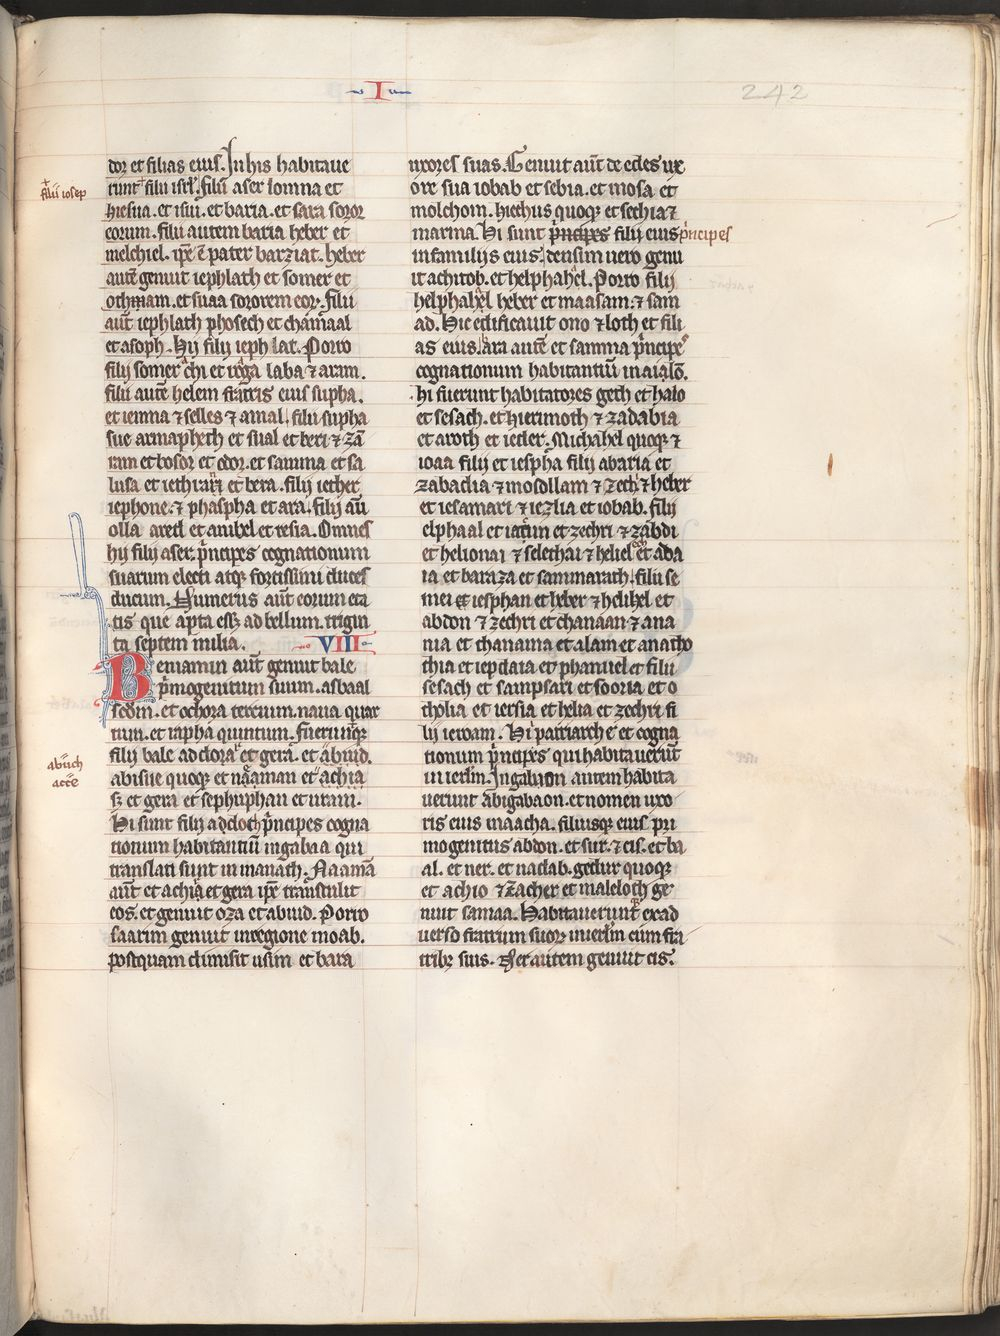 I
242
dor et filias eius. In his habitaue
runt + filii isrl'. filii aser iomna et
+ filii iosep
hiesua. et isui. et baria. et sara soror
eorum. filii autem baria heber et
melchiel. ip̄e ē pater barziat. heber
autē genuit iephlath et somer et
othmam. et suaa sororem eoꝝ. filii
aūt iephlath phosech et chamaal
et asoph. Hij filij iephlat. Porro
filij somer achi et roga iaba ⁊ aram.
filii autē helem fratris eius supha.
et iemna ⁊ selles ⁊ amal. filii supha
sue arnapheth et sual et beri ⁊ zā
ram et bosor et odor. et samma et sa
lusa et iethran et bera. filij iether
iephone. ⁊ phaspha et ara. filij aūt
olla areel et anihel et resia. Omnes
hij filij aser. prīcipes cognationum
suarum electi atqꝫ fortissimi duces
ducum. Numerus aūt eorum eta
tis que apta essꝫ ad bellum. trigin
ta septem milia. VIII
Beniamin aūt genuit bale
pͥmogenitum suum. asbaal
scd̄m. et ochora tercium. naua quar
tum. et rapha quintum. Fueruntqꝫ
filij bale addoar et gera. et abiud.
abisue quoqꝫ et naaman et achia
abiuch
acce
sꝫ et gera et sephuphan et uram.
Hi sunt filij adoloch pͥncipes cogna
tionum habitantiū in gabaa qui
translati sunt in manath. Naamā
aūt et achia et gera ip̄e transtulit
eos. et genuit oza et abiud. Porro
saarim genuit in regione moab.
postquam dimisit usim et bara
uxores suas. Genuit aūt de edes ux
ore sua iobab et sebia. et mosa et
molchom. hiethus quoqꝫ et sechia ⁊
marma. Hi sunt pͥncipes filij eius pͥncipes
in familijs eius. densim uero genu
it achitob. et helphahel. Porro filij
helphahel heber et maasam. ⁊ sam
ad. Hic edificauit ono ⁊ loth et fili
as eius. ara autē et samma pͥncipes
cognationum habitantiū in aialō.
hi fuerunt habitatores geth et haio
et sesach. et hierimoth ⁊ zadabia
et aroth et ieder. Michahel quoqꝫ ⁊
ioaa filij et iespha filij abaria et
zabadia ⁊ mosollam ⁊ zechi ⁊ heber
et iesamari ⁊ iezlia et iobab. filij
elphaal et iacim et zechri ⁊ zabdi
et helionai ⁊ selethai ⁊ heliel et ada
ia et baraza et sammarath. filii se
mei et iesphan et heber ⁊ helihel et
abdon ⁊ zechri et chanaan ⁊ ana
nia et chanama et alam et anatho
thia et iepdaia et phanuel et filii
sesach et sampsari et sooria et o
tholia et iersia et helia et zechri fi
lij ieroam. Hi patriarche et cogna
tionum pͥncipes qui habitauerūt
in ierl'm. In gabaon autem habita
uerunt abigabaon. et nomen uxo
ris eius maacha. filiusqꝫ eius pri
mogenitus abdon. et sur. ⁊ cis. et ba
al. et ner. et nadab. gedur quoqꝫ
et achio ⁊ zacher et maleloth ge
nuit samaa. Habitauerunt ex ad
uerso fratrum suoꝝ in ierl'm cum fra
tribꝫ suis. Ner autem genuit cis.